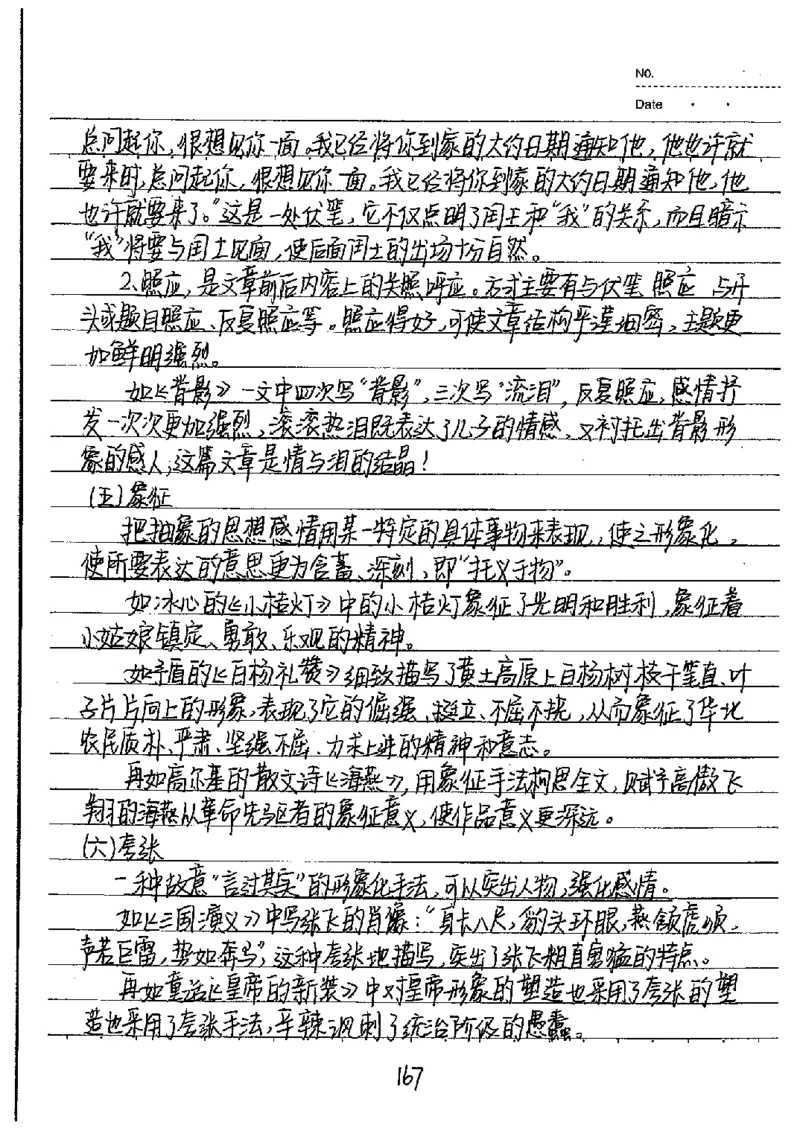 NO.
Date
总问起你,很想见你一面。我已经将你到家的大约日期通知他,他也许就
要来时,总问起你,很想见你一面。我已经将你到家的大约日期通知他,他
也许就要来了。"这是一处伏笔,它不仅点明了闰土和"我"的关系,而且暗示
"我"将要与闰土见面,使后面闰土的出场十分自然。
2、照应,是文章前后内容上的关照呼应。方式主要有与伏笔照应 与开
头或题目照应、反复照应等。照应得好,可使文章结构严谨细密,主题更
加鲜明强烈。
如《背影》一文中四次写"背影",三次写"流泪",反复照应,感情抒
发一次次更加强烈,滚滚热泪既表达了儿子的情感,又衬托出背影形
象的感人,这篇文章是情与泪的结晶!
(五)象征
把抽象的思想感情用某一特定的具体事物来表现,使之形象化,
使所要表达的意思更为含蓄、深刻,即"托义于物"。
如冰心的《小桔灯》中的小桔灯象征了光明和胜利,象征着
小姑娘镇定、勇敢、乐观的精神。
如矛盾的《白杨礼赞》细致描写了黄土高原上白杨树枝干笔直、叶
子片片向上的形象,表现了它的倔强、挺立、不屈不挠,从而象征了华北
农民质朴、严肃、坚强不屈、力求上进的精神和意志。
再如高尔基的散文诗《海燕》,用象征手法构思全文,赋予高傲飞
翔的海燕以革命先驱者的象征意义,使作品意义更深远。
(六)夸张
一种故意"言过其实"的形象化手法,可以突出人物,强化感情。
如《三国演义》中写张飞的肖像:"身长八尺,豹头环眼,燕颔虎须,
声若巨雷,势如奔马",这种夸张地描写,突出了张飞粗直勇猛的特点。
再如童话《皇帝的新装》中对皇帝形象的塑造也采用了夸张的塑
造也采用了夸张手法,辛辣讽刺了统治阶级的愚蠢。
167